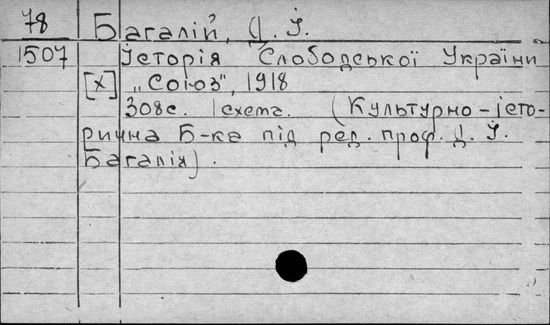 78 Багалій, Д. І.
1507 Історія Слободської України
[x] „Союз", 1918
308с. 1схема. (Культурно-істо-
рична Б-ка під ред. проф. Д. І.
Багалія).